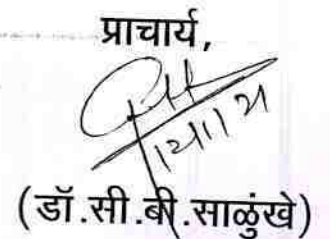 प्राचार्य,
(डॉ.सी.बी.साळुंखे)